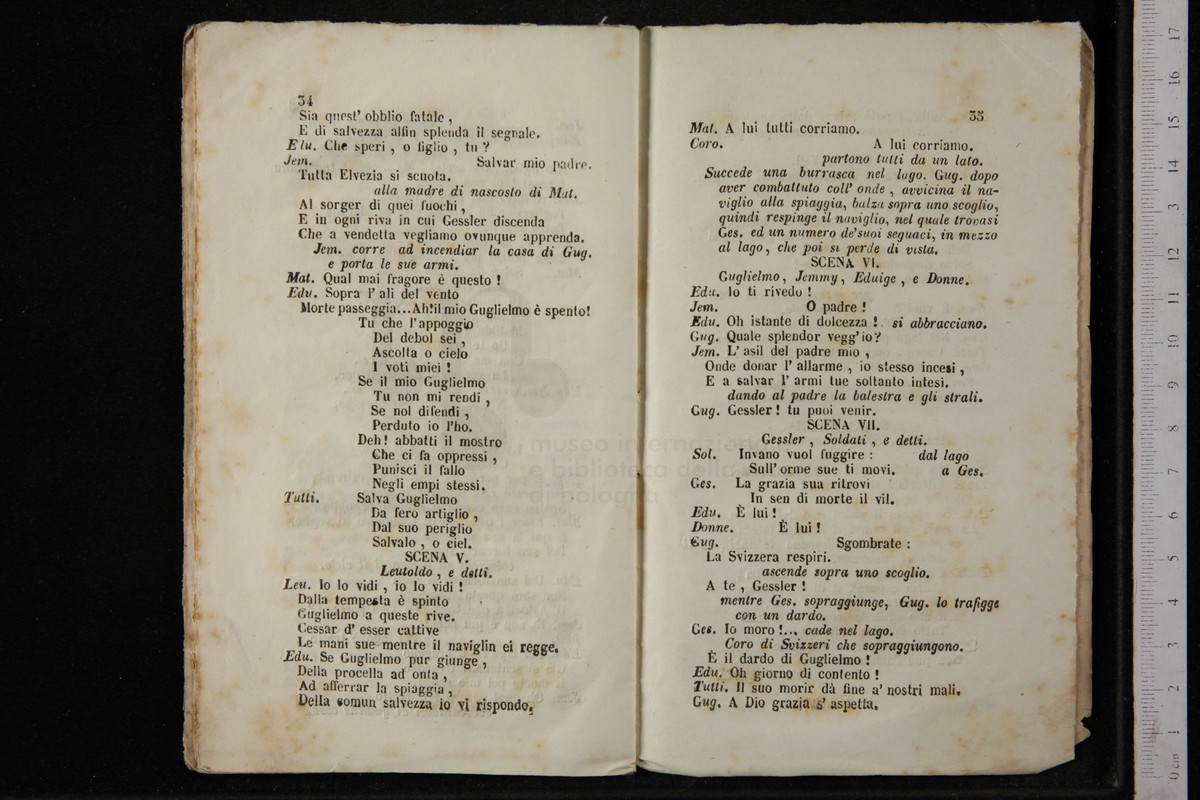 34
Sia quest' obblio fatale ,
E di salvezza alfin splenda il segnale.
Edu. Che speri , o figlio , tu ?
Jem. Salvar mio padre.
Tutta Elvezia si scuota.
alla madre di nascosto di Mat.
Al sorger di quei fuochi ,
E in ogni riva in cui Gessler discenda
Che a vendetta vegliamo ovunque apprenda.
Jem. corre ad incendiar la casa di Gug.
e porta le sue armi.
Mat. Qual mai fragore è questo !
Edu. Sopra l' ali del vento
Morte passeggia...Ah!il mio Guglielmo è spento!
Tu che l'appoggio
Del debol sei ,
Ascolta o cielo
I voti miei !
Se il mio Guglielmo
Tu non mi rendi ,
Se nol difendi ,
Perduto io l'ho.
Deh! abbatti il mostro
Che ci fa oppressi ,
Punisci il fallo
Negli empi stessi.
Tutti. Salva Guglielmo
Da fero artiglio ,
Dal suo periglio
Salvalo , o ciel.
SCENA V.
Leutoldo , e detti.
Leu. Io lo vidi , io lo vidi !
Dalla tempesta è spinto
Guglielmo a queste rive.
Cessar d' esser cattive
Le mani sue mentre il naviglin ei regge.
Edu. Se Guglielmo pur giunge ,
Della procella ad onta ,
Ad afferrar la spiaggia ,
Della comun salvezza io vi rispondo.
35
Mat. A lui tutti corriamo.
Coro. A lui corriamo.
partono tutti da un lato.
Succede una burrasca nel lago. Gug. dopo
aver combattuto coll' onde , avvicina il na-
viglio alla spiaggia, balza sopra uno scoglio,
quindi respinge il naviglio, nel quale trovasi
Ges. ed un numero de'suoi seguaci, in mezzo
al lago, che poi si perde di vista.
SCENA VI.
Guglielmo, Jemmy, Eduige , e Donne.
Edu. Io ti rivedo !
Jem. O padre !
Edu. Oh istante di dolcezza ! si abbracciano.
Gug. Quale splendor vegg'io?
Jem. L' asil del padre mio ,
Onde donar l' allarme , io stesso incesi ,
E a salvar l' armi tue soltanto intesi.
dando al padre la balestra e gli strali.
Gug. Gessler ! tu puoi venir.
SCENA VII.
Gessler , Soldati , e detti.
Sol. Invano vuol fuggire : dal lago
Sull' orme sue ti movi. a Ges.
Ges. La grazia sua ritrovi
In sen di morte il vil.
Edu. È lui !
Donne. È lui !
Gug. Sgombrate :
La Svizzera respiri.
ascende sopra uno scoglio.
A te , Gessler !
mentre Ges. sopraggiunge, Gug. lo trafigge
con un dardo.
Ges. Io moro !... cade nel lago.
Coro di Svizzeri che sopraggiungono.
È il dardo di Guglielmo !
Edu. Oh giorno di contento !
Tutti. Il suo morir dà fine a' nostri mali.
Gug. A Dio grazia s' aspetta.